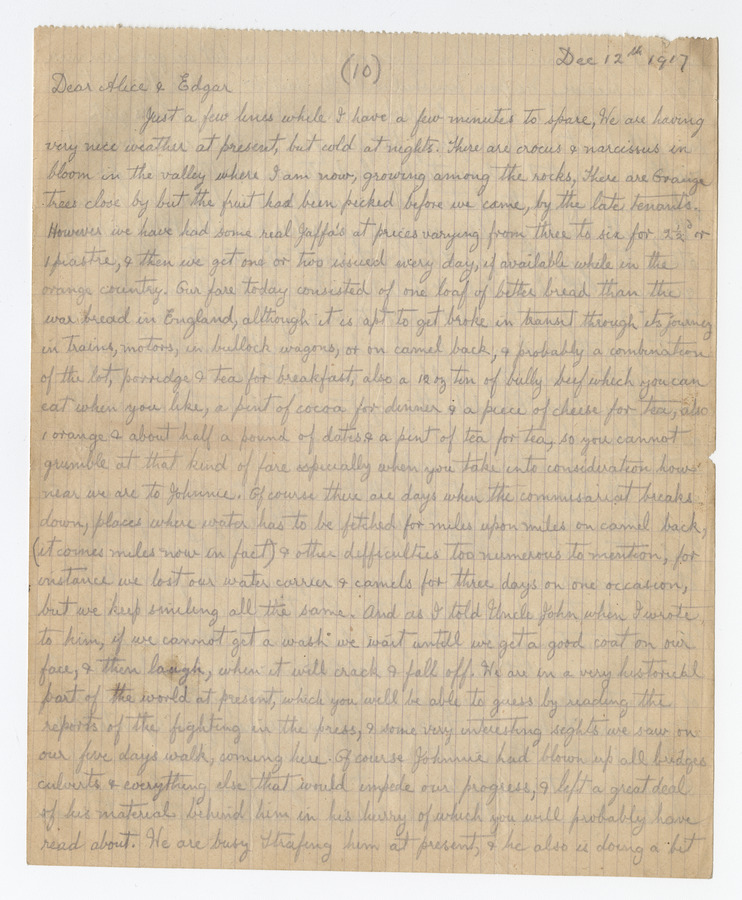 Dec 12th 1917
(10)
Dear Alice & Edgar
Just a few lines while I have a few minutes to spare, We are having
very nice weather at present, but cold at nights. There are crocus & narcissus in
bloom in the valley where I am now, growing among the rocks, There are Orange
trees close by but the fruit had been picked before we came, by the late tenants.
However we have had some real Jaffa's at prices varying from three to six for 2½d or
1 piastre, & then we get one or two issued every day, if available while in the
orange country. Our fare today consisted of one loaf of better bread than the
war bread in England, although it is apt to get broke in transit through its journey
in trains, motors, in bullock wagons, or on camel back, & probably a combination
of the lot, porridge & tea for breakfast, also a 12 oz tin of bully beef which you can
eat when you like, a pint of cocoa for dinner & a piece of cheese for tea, also
1 orange & about half a pound of dates & a pint of tea for tea, so you cannot
grumble at that kind of fare especially when you take into consideration how
near we are to Johnnie. Of course there are days when the commisariat breaks
down, places where water has to be fetched for miles upon miles on camel back,
(it comes miles now in fact) & other difficulties too numerous to mention, for
instance we lost our water carrier & camels for three days on one occasion,
but we keep smiling all the same. And as I told Uncle John when I wrote
to him, if we cannot get a wash we wait untill we get a good coat on our
face, & then laugh, when it will crack & fall off. We are in a very historical
part of the world at present, which you will be able to guess by reading the
reports of the fighting in the press, & some very interesting sights we saw on
our five days walk, coming here. Of course Johnnie had blown up all bridges
culverts & everything else that would impede our progress, & left a great deal
of his material behind him in his hurry of which you will probably have
read about. We are busy strafing him at present, & he also is doing a bit